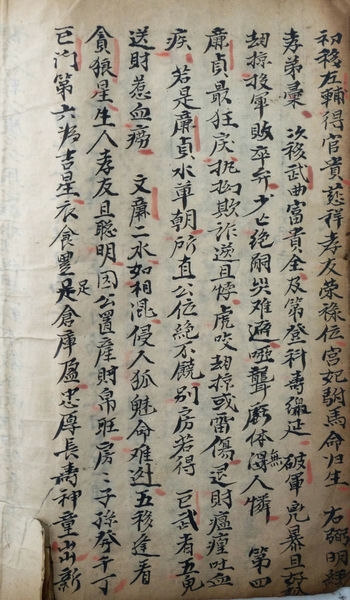 初移左輔得官貴慈祥孝友榮祿位宮妃駙馬命归生 右弼明經
孝弟彙 次移武曲富貴全及第登科壽緜延 破軍兇暴且好
劫掠投軍敗卒亦少亡絕嗣災難避喑聾廢体無人憐 第四
廉貞最狂戾執拗欺詐遊且悖虎咬劫掠或雷傷退財瘟㾮吐血
疾 若是廉貞水單朝所直公位絕不饒別房若得 巨武者五免
送財惹血癆 文廉二水如相混侵人狐魅命難逃五移逢着
貪狼星生人孝友且聰明因公置產財帛旺房房子孫發千丁
巨门第六为吉星衣食豐足足倉庫盈忠厚長壽神童出新